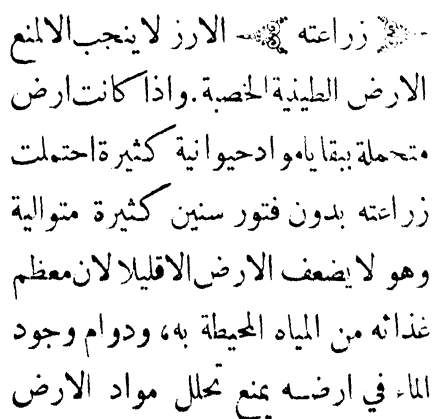 ﴿ زراعته ﴾ الارز لا ينجب الا لمنع
الارض الطينية الخصبة. واذا كانت ارض
متحملة ببقايا مواد حيوانية كثيرة احتملت
زراعته بدون فتور سنين كثيرة متوالية
وهو لا يضعف الارض الا قليلا لان معظم
غذائه من المياه المحيطة به، ودوام وجود
الماء في ارضه يمنع تحلل مواد الارض